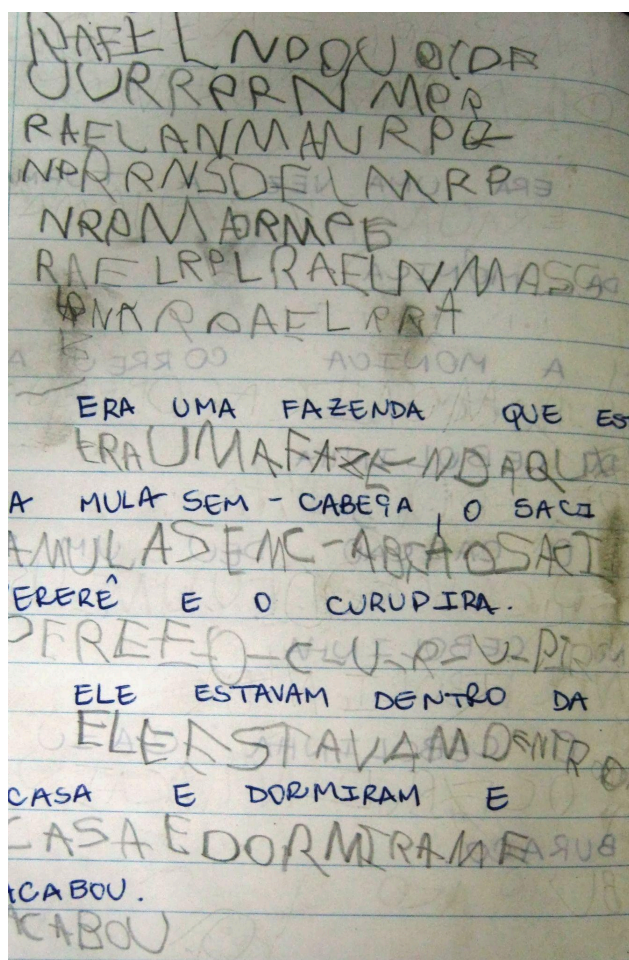 RAFELNDOUOIDA
UURRPRNMPR
RAELANMANRPQ
NPRRNSDELAMRP
NRPMARMPE
RAELRPLRAELNMASA
ANARDAELRRA
ERA UMA FAZENDA QUE ES
ERAUMAFAZENDAQUE
A MULA SEM-CABEÇA, O SACI
AMULASEMC-ABRAOSACI
ERERÊ E O CURUPIRA.
PEREE-O-C-U-R-U-PI
ELE ESTAVAM DENTRO DA
ELEESTAVAMDENTRO
CASA E DORMIRAM E
CASAEDORMIRAME
ACABOU.
ACABOU